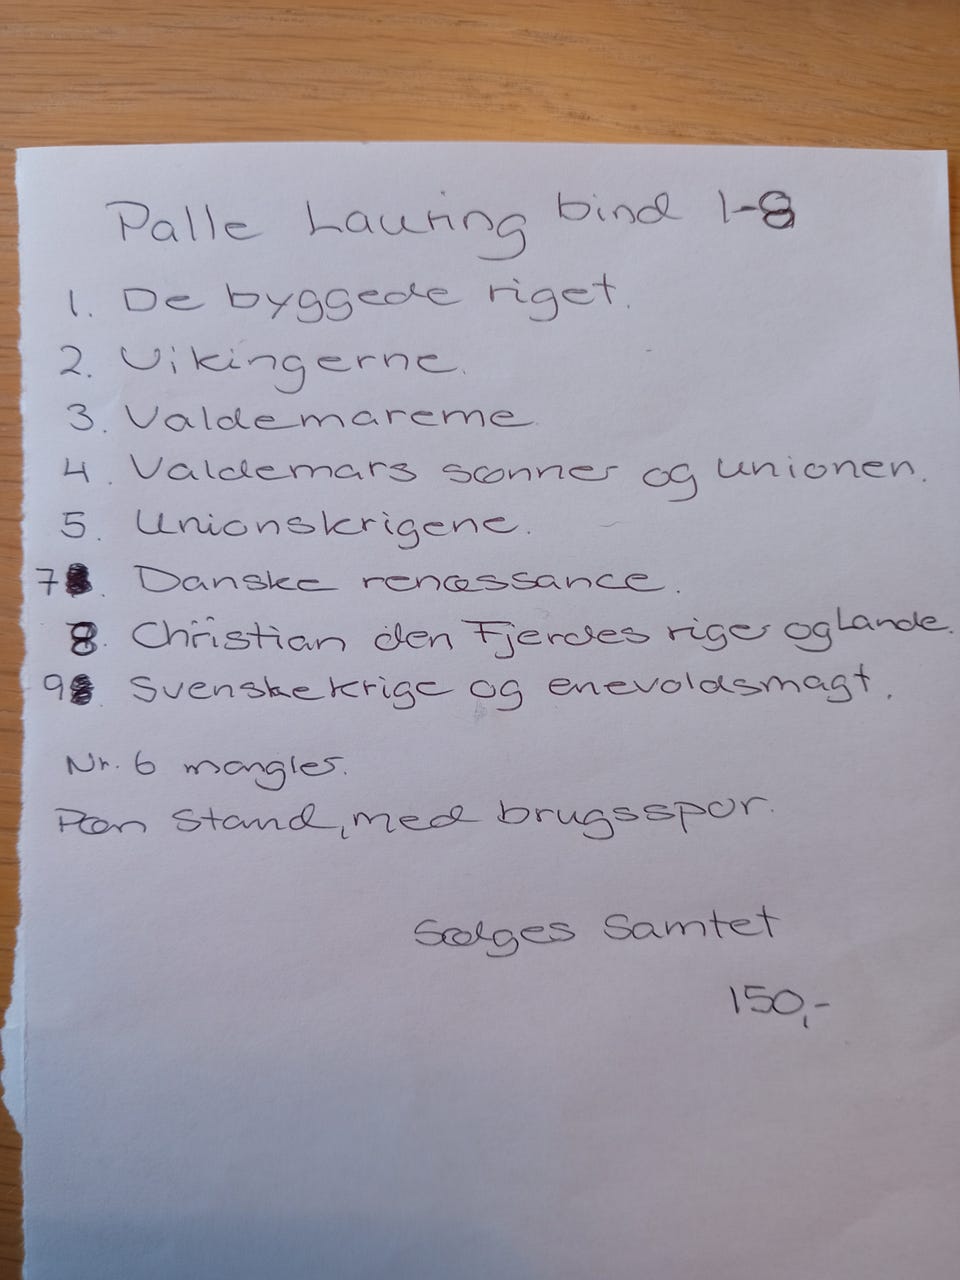 Palle Lauring bind 1-8
1. De byggede riget.
2. Vikingerne.
3. Valdemarerne
4. Valdemars sønner og unionen.
5. Unionskrigene.
7. Danske renæssance.
8. Christian den Fjerdes riger og Lande.
9. Svenskekrige og enevoldsmagt.
Nr. 6 mangler.
Pæn stand, med brugsspor.
Sælges Samtet
150,-